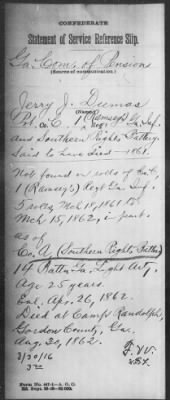 CONFEDERATE
Statement of Service Reference Slip.
Ga. Com. of Pension
(Source of communication.)
Jerry J. Dumas
(Name)
Pt. Co. C. 1 (Ramsey's) Ga. Inf.
Regt
and Southern Rights Battery
Said to have died 186
Not found on rolls of Co. C,
1 (Ramsey's) Regt Ga. Inf.
5 rolls Mch 18, 1861 to
Mch 15, 1862, in part.
as of
Co. A (Southern Rights Battry)
14 Battn Ga. Light Arty,
Age 25 years.
Enl. Apr. 26, 1862.
Died at Camp Randolph,
Gordon County, Ga.
Aug. 20, 1862.
3/20/16